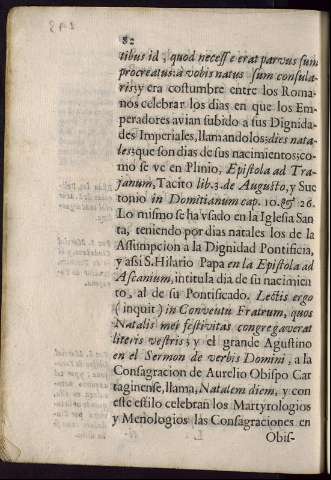 82
tibus id, quod necesse erat parvus sum
procreatus: à vobis natus sum consula-
ris; y era costumbre entre los Roma-
nos celebrar los dias en que los Em-
peradores avian subido a sus Dignida-
des Imperiales, llamandolos: dies nata-
les; que son dias de sus nacimientos; co-
mo se ve en Plinio, Epistola ad Tra-
janum, Tacito lib. 3. de Augusto, y Sue
tonio in Domitianum cap. 10. & 26.
Lo mismo se ha vsado en la Iglesia San
ta, teniendo por dias natales los de la
Assumpcion a la Dignidad Pontificia,
y assi S. Hilario Papa en la Epistola ad
Ascanium, intitula dia de su nacimien
to, al de su Pontificado. Lectis ergo
(inquit) in Conventu Fratrum, quos
Natalis mei festivitas congregaverat
literis vestris; y el grande Agustino
en el Sermon de verbis Domini, a la
Consagracion de Aurelio Obispo Car
taginense, llama, Natalem diem, y con
este estilo celebran los Martyrologios
y Menologios las Consagraciones en
Obis-